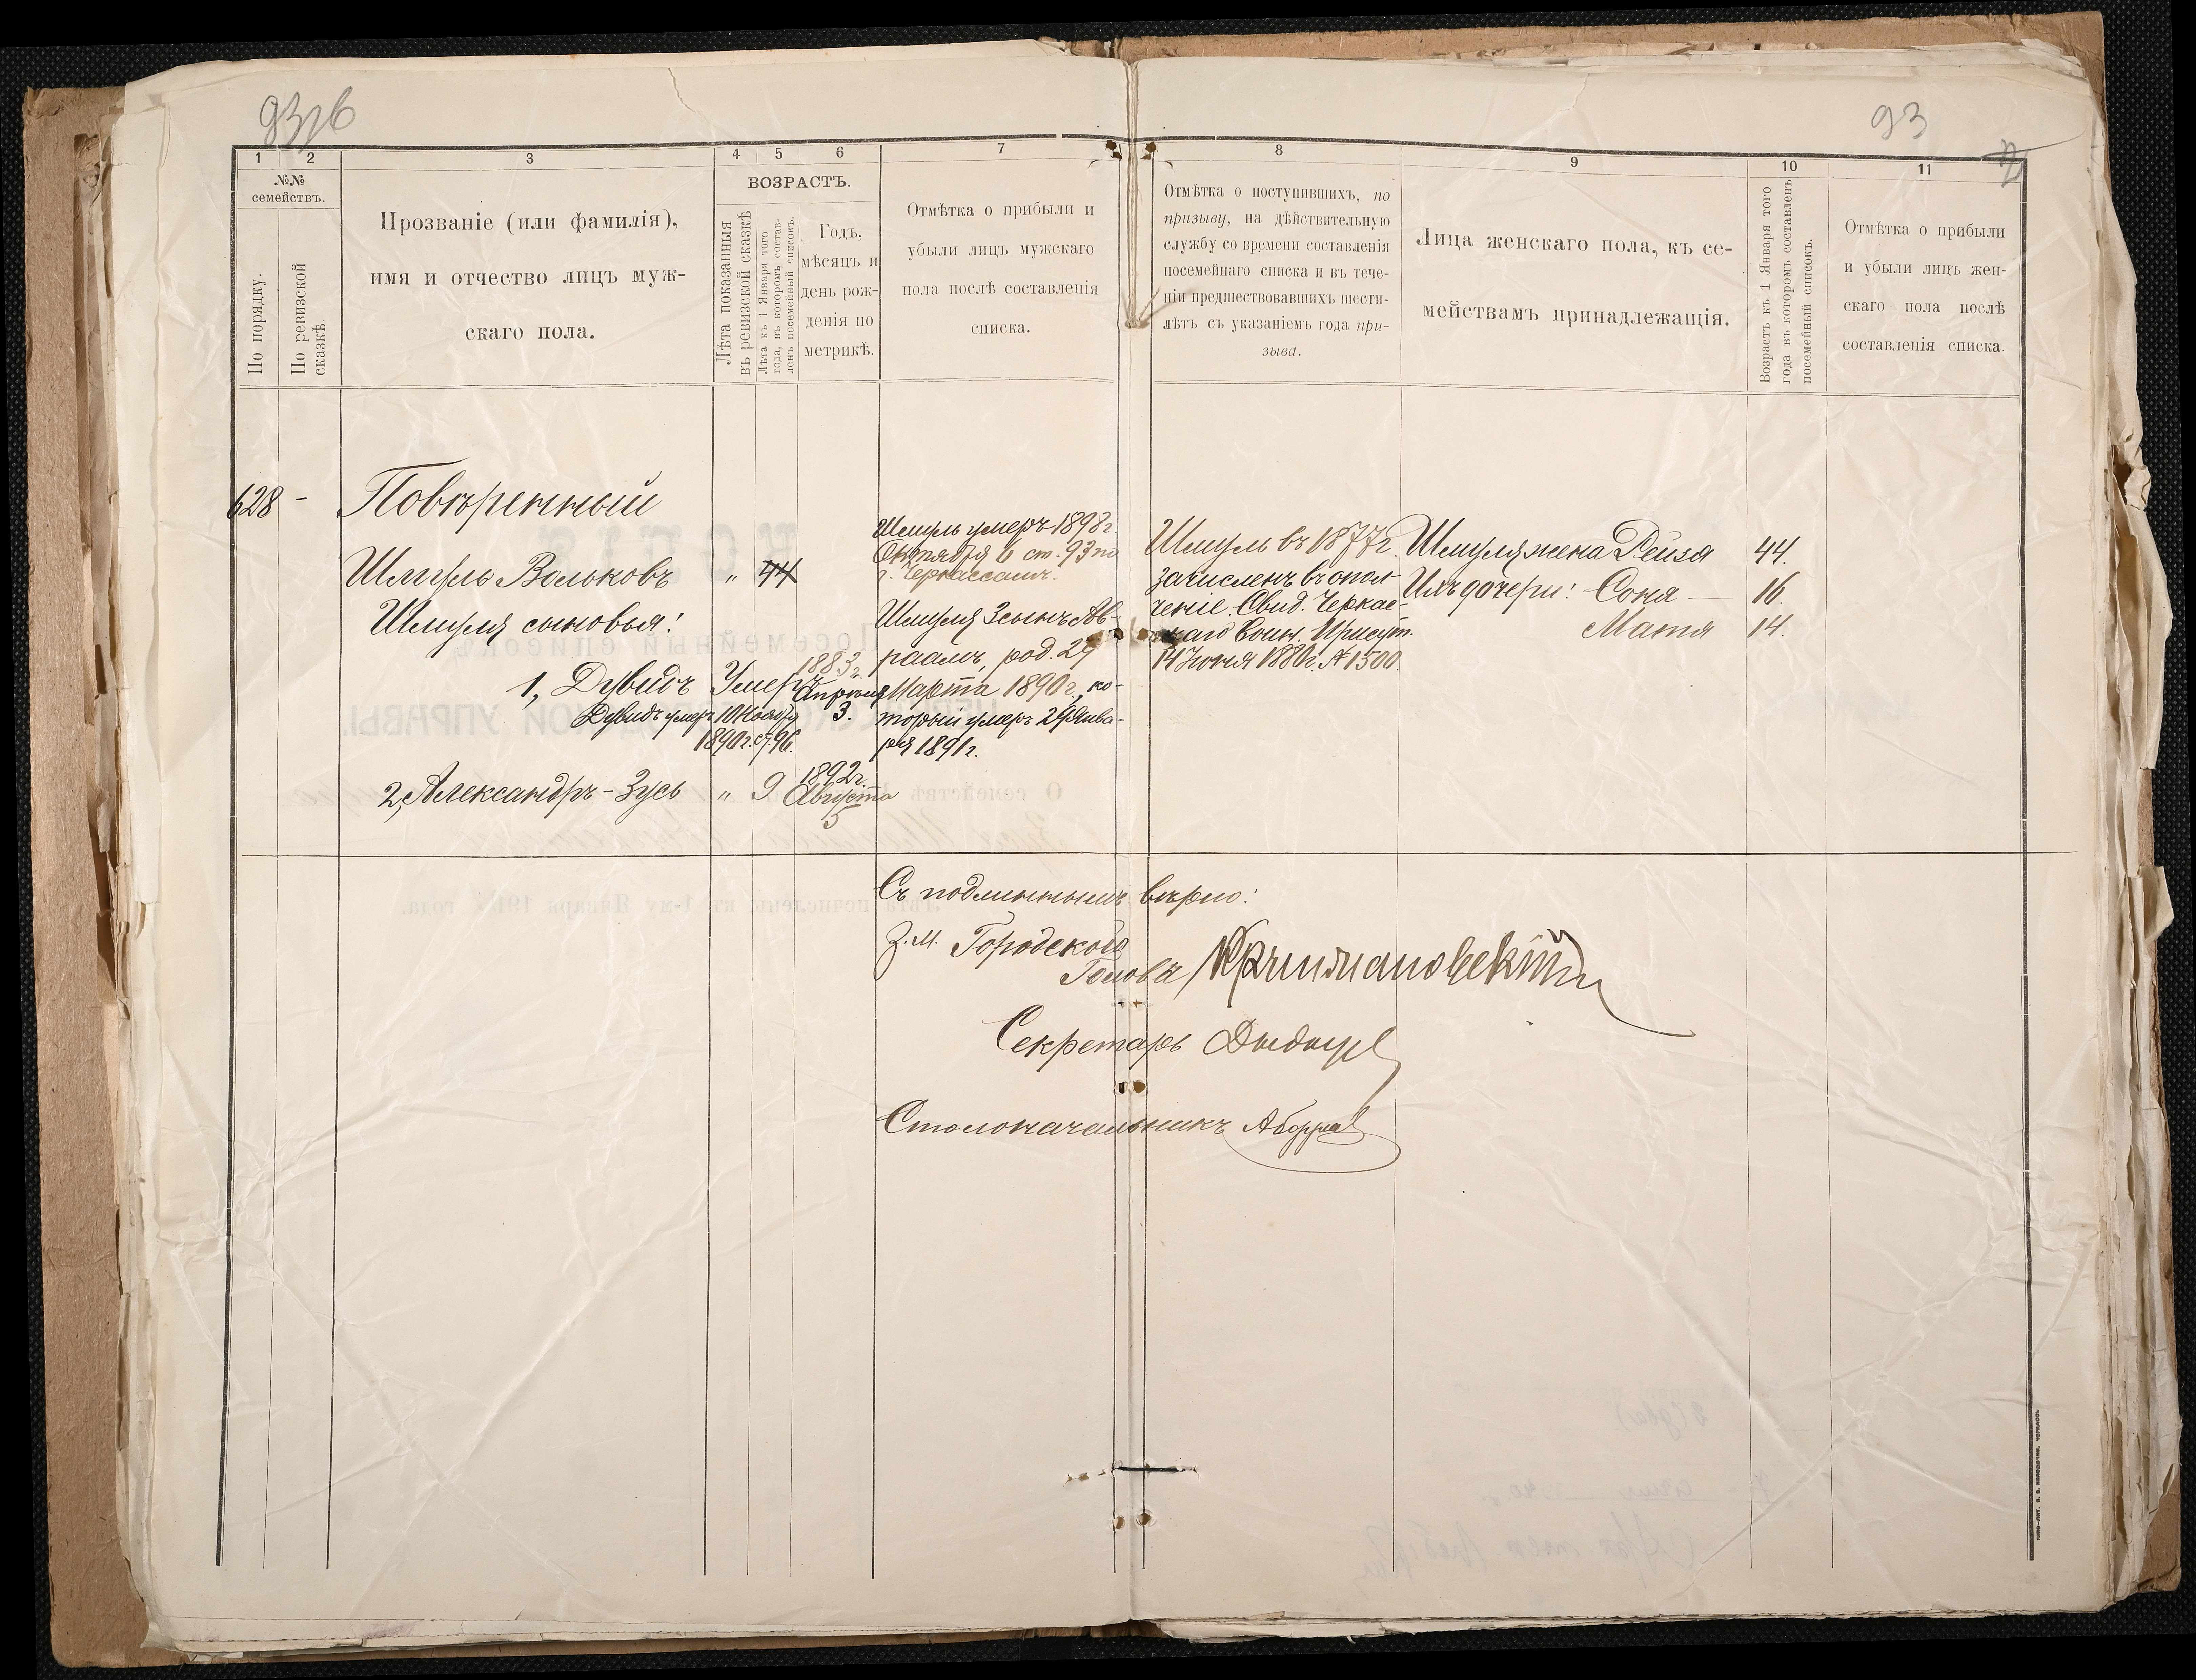 93
1
2
3
4
5
6
7
8
9
10
11
№№
семействъ.
По порядку.
По ревизской
сказкѣ.
Прозваніе (или фамилія),
имя и отчество лицъ муж-
скаго пола.
ВОЗРАСТЪ.
Лѣта показанныя
въ ревизской сказкѣ
Лѣта къ 1 Января того
года, въ которомъ состав-
ленъ посемейный списокъ.
Годъ,
мѣсяцъ и
день рож-
денія по
метрикѣ.
Отмѣтка о прибыли и
убыли лицъ мужскаго
пола послѣ составленія
списка.
Отмѣтка о поступившихъ, по
призыву, на дѣйствительную
службу со времени составленія
посемейнаго списка и въ тече-
ніи предшествовавшихъ шести-
лѣтъ съ указаніемъ года при-
зыва.
Лица женскаго пола, къ се-
мействамъ принадлежащія.
Возрастъ къ 1 Января того
года въ которомъ составленъ
посемейный списокъ.
Отмѣтка о прибыли
и убыли лицъ жен-
скаго пола послѣ
составленія списка.
628 - Повѣренный
Шмуль Вольковъ " 44
Шмуля сыновья:
1, Дувидъ Умеръ 1883 г.
Апрѣля
3.
Дувидъ умеръ 10 Ноября
1890 г. ст. 96.
2, Александръ-Зусь " 9 1892 г.
Августа
5
Шмуль умеръ 1898 г.
Октября 6 ст. 93 по
г. Черкассамъ.
Шмуля 3 сынъ Ав-
раамъ, род. 29
Марта 1890 г., ко-
торый умеръ 29 Янва-
ря 1891 г.
Шмуль въ 1877 г.
зачисленъ въ опол-
ченіе. Свид. Черкас-
скаго Воин. Присут.
14 Іюня 1880 г. № 1500.
Шмуля жена Рейзя 44.
Ихъ дочери: Соня — 16.
Матя 14.
Съ подлиннымъ вѣрно:
З. М. Городского
Головы
Секретарь
Столоначальникъ